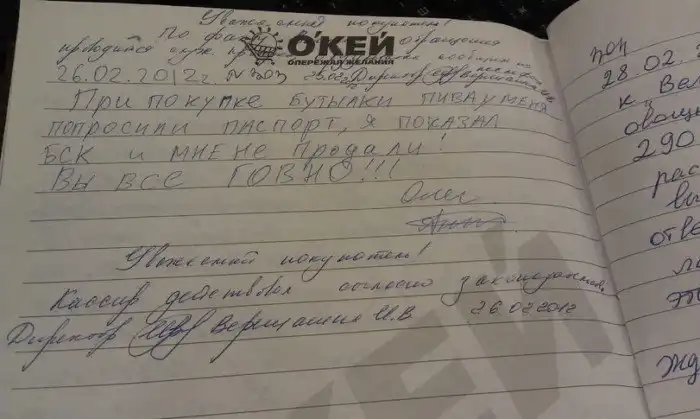 Уважаемый покупатель!
По фак обращения
проводится
О'КЕЙ
ОПЕРЕЖАЯ ЖЕЛАНИЯ
26.02.2012г. №303 Директор
При покупке бутылки пива у меня
попросили паспорт, я показал
БСК и мне не продали!
Вы все говно!!!
Олег
Уважаемый покупатель!
Кассир действовал согласно законодательства
Директор И.В 26.02.2012
303
28.02.
к Вел
овощ
290
рас
отве
жд